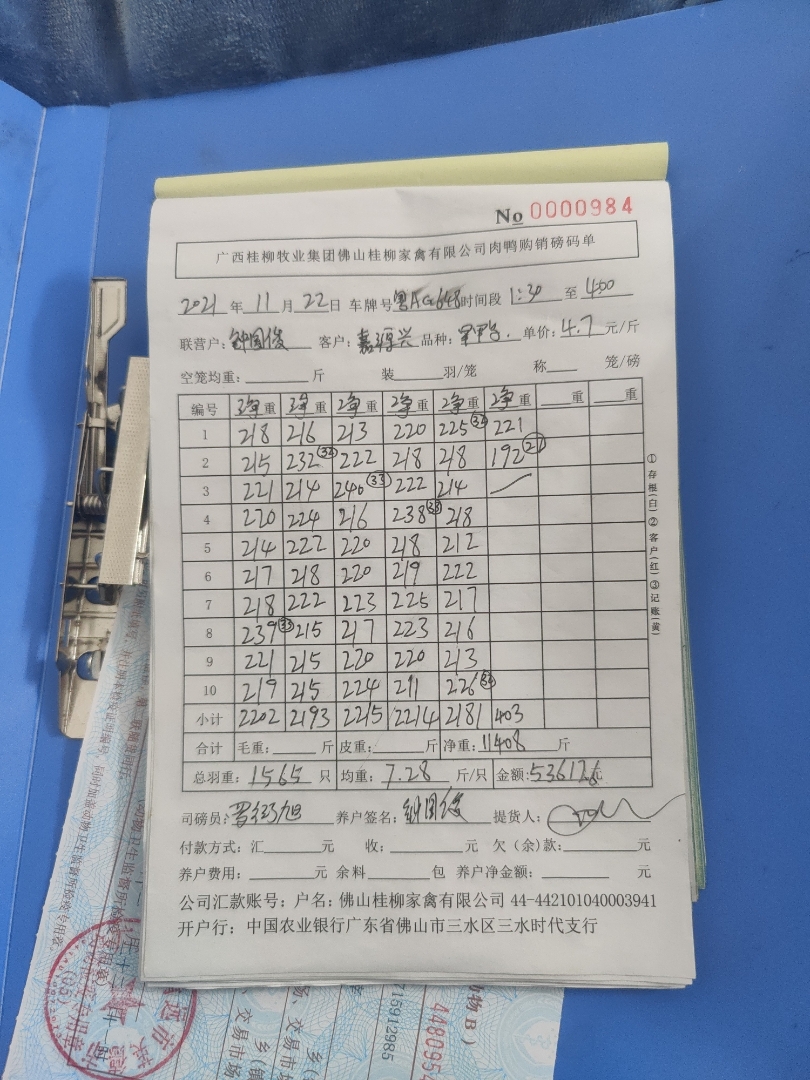 No 0000984
广西桂柳牧业集团佛山桂柳家禽有限公司肉鸭购销磅码单
2021 年 11 月 22 日 车牌号 粤AG648 时间段 1:30 至 4:00
联营户: 钟国俊 客户: 嘉淳兴 品种: 单价: 4.7 元/斤
空笼均重: 斤 装 羽/笼 称 笼/磅
编号 净重 净重 净重 净重 净重 净重 重 重
1 218 216 213 220 225 221
2 215 232 32 222 218 218 192 27
3 221 214 240 33 222 214
4 220 224 216 238 33 218
5 214 222 220 218 212
6 217 218 220 219 222
7 218 222 223 225 217
8 239 33 215 217 223 216
9 221 215 220 220 213
10 219 215 224 211 226
小计 2202 2193 2215 2214 2181 403
合计 毛重: 斤 皮重: 斤 净重: 11408 斤
总羽重: 1565 只 均重: 7.28 斤/只 金额: 53617.6 元
司磅员: 养户签名: 钟国俊 提货人:
付款方式: 汇 元 收: 元 欠(余)款: 元
养户费用: 元 余料 包 养户净金额: 元
公司汇款账号: 户名: 佛山桂柳家禽有限公司 44-442101040003941
开户行: 中国农业银行广东省佛山市三水区三水时代支行
①存根(白)②客户(红)③记账(黄)
715912985
4480954